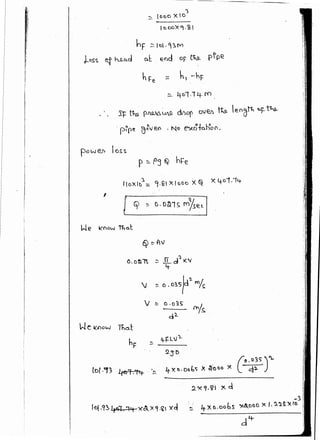 = 1000 X 10³
1000X9.81
hF = 101.93m
Loss of head at end of the pipe
hFe = h₁ - hF
= 407.74 m
∴ If the pressure drop over the length of the pipe given. No excitation.
power loss
P = ρg Q hFe
110X10³ = 9.81 X 1000 X Q X 407.74
Q = 0.0275 m³/sec
We know That
Q = AV
0.0275 = π/4 d² x V
V = 0.035/d² m/s
V = 0.035/d² m/s
We know That
hF = 4FLV²
2gD
101.93 = 4 x 0.0065 x 2000 x (0.035/d²)²
2 x 9.81 x d
101.93 x 2 x 9.81 x d = 4 x 0.0065 x 2000 x 1.225 x 10⁻³
d⁴